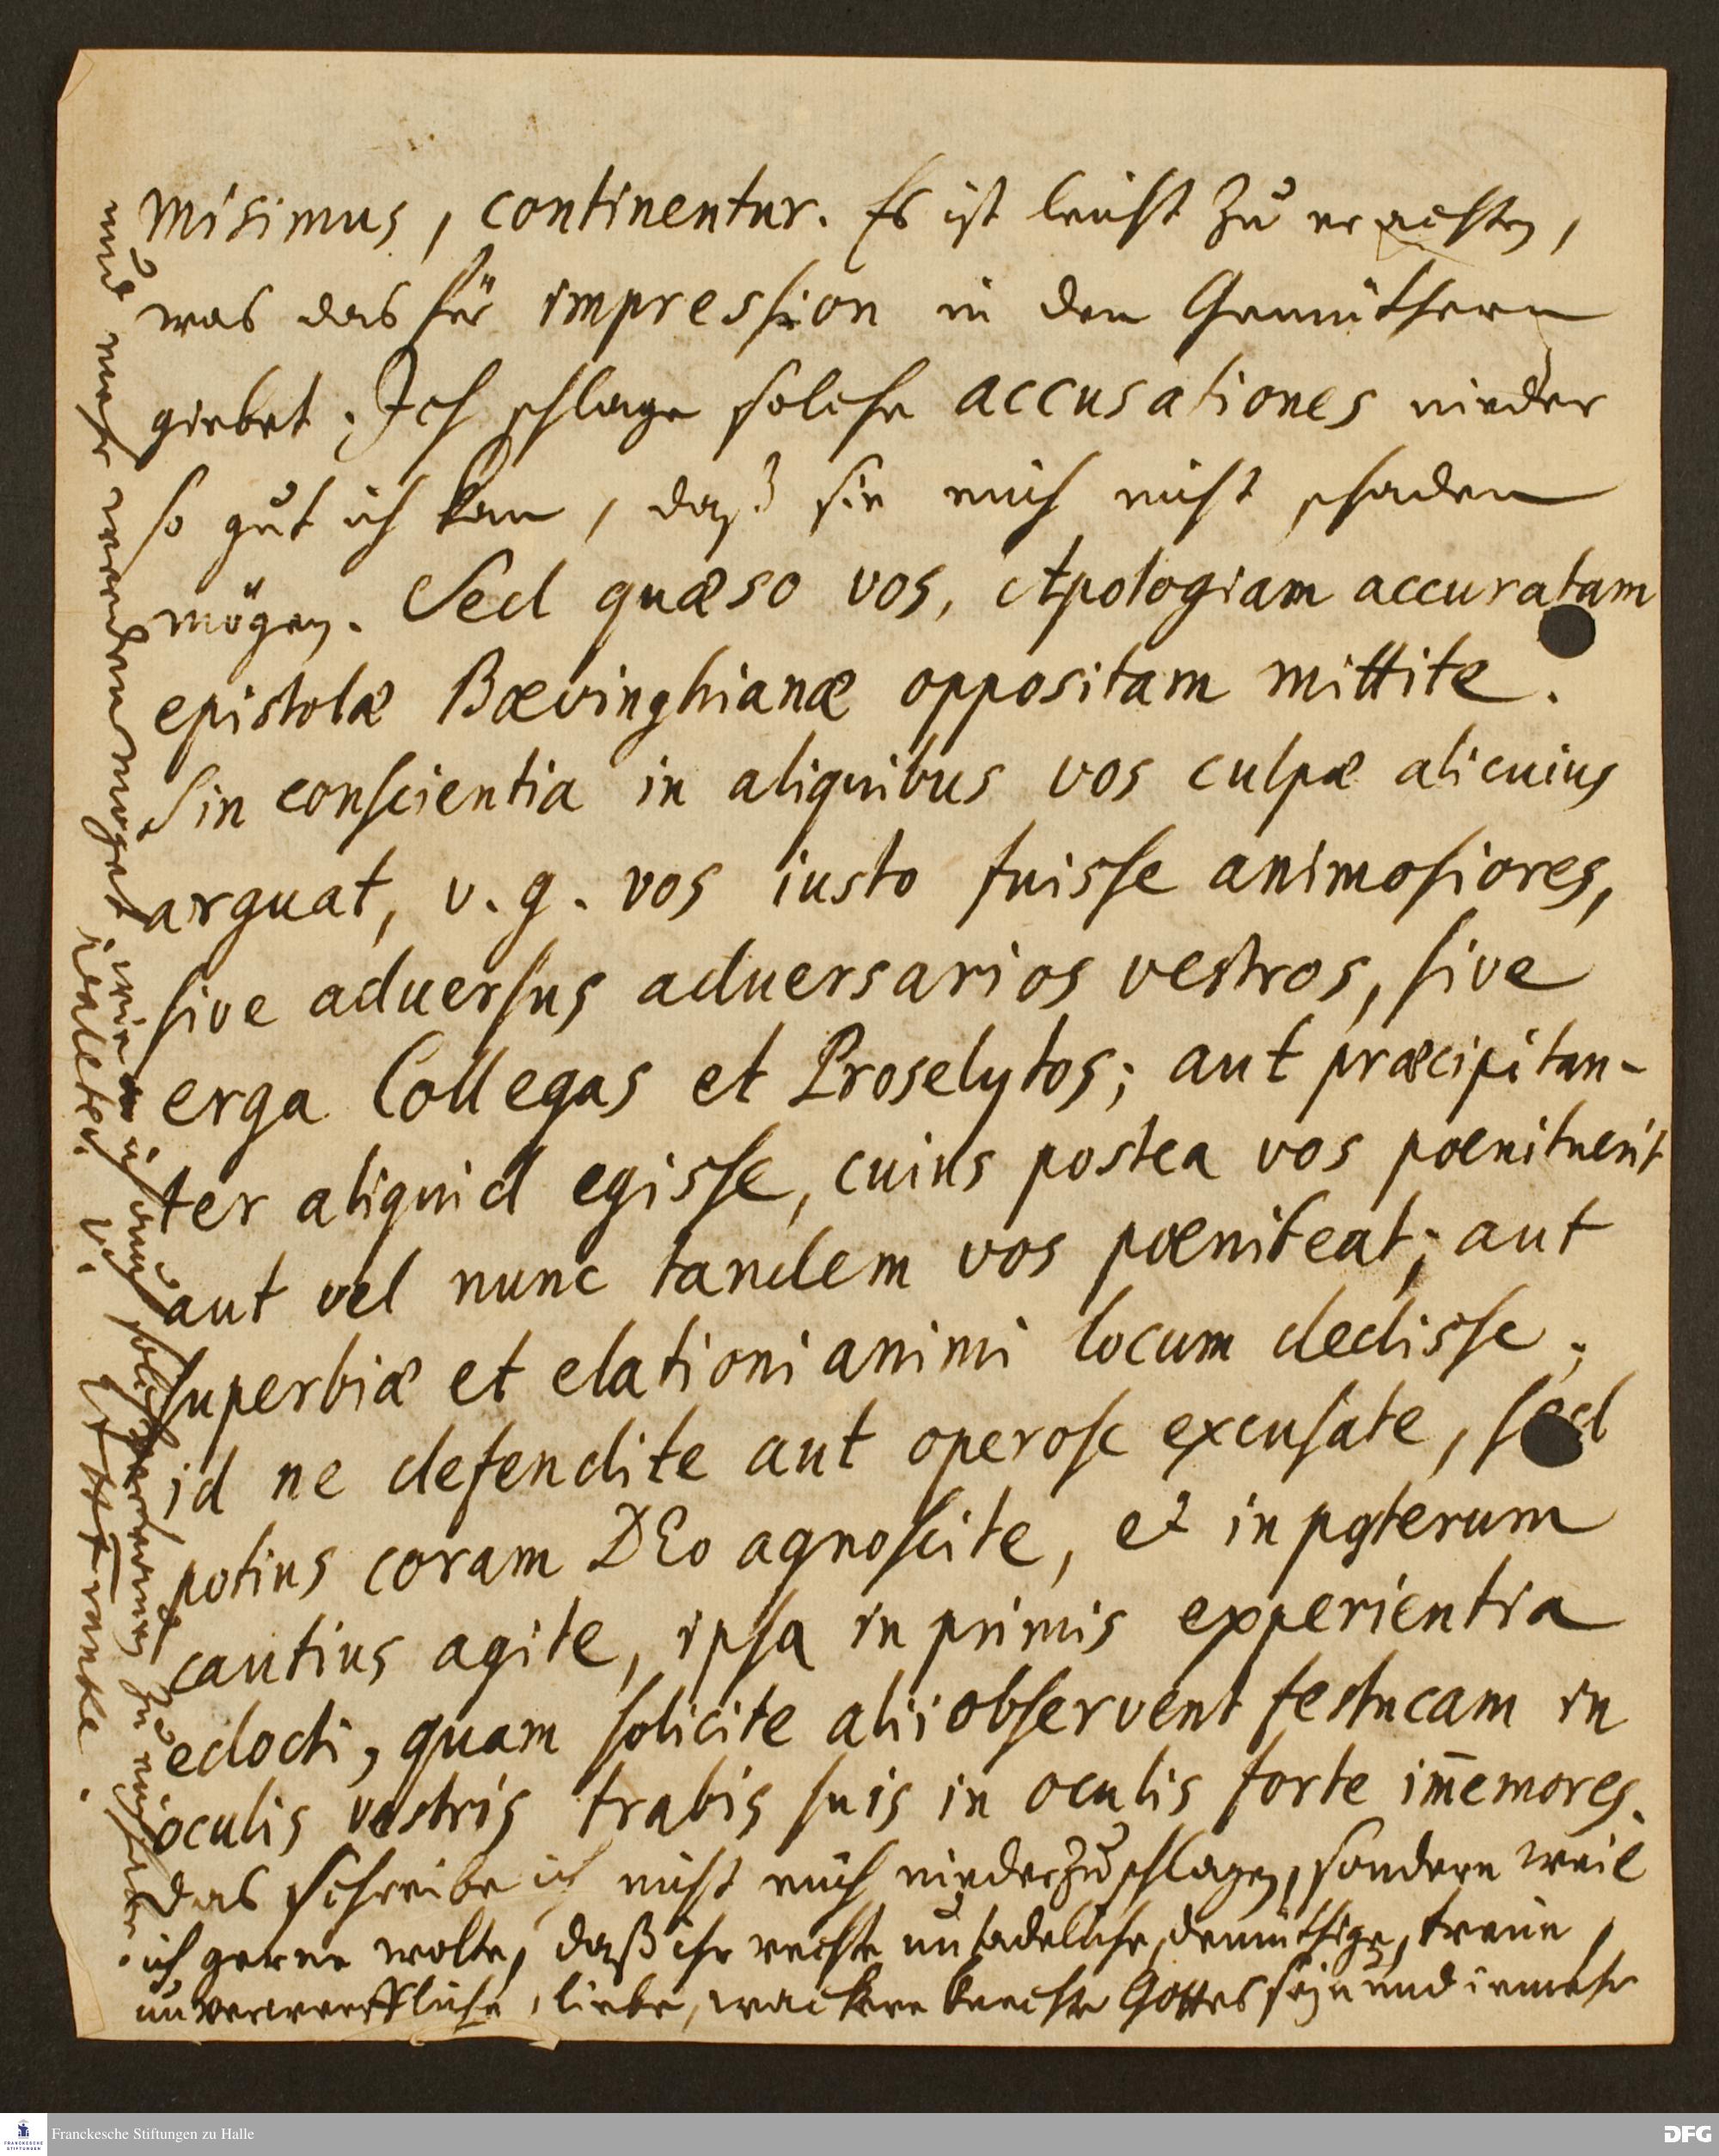 misimus, continentur. Es ist leicht zu erachten,
was das für impression in den Gemüthern
giebet. Ich schlage solche accusationes nieder
so gut ich kan, daß sie euch nicht schaden
mögen. Sed quæso vos, Apologiam accuratam
epistolæ Bœvinghianæ oppositam mittite.
Sin conscientia in aliquibus vos culpæ alicuius
arguat, v. g. vos iusto fuisse animosiores,
sive aduersus aduersarios vestros, sive
erga Collegas et Proselytos; aut præcipitan-
ter aliquid egisse, cuius postea vos pœnituerit
aut vel nunc tandem vos pœniteat; aut
superbiæ et elationi animi locum dedisse;
id ne defendite aut operose excusate, sed
potius coram DEo agnoscite, et in posterum
cautius agite, ipsa in primis experientia
edocti, quam solicite alii observent festucam in
oculis vestris trabis suis in oculis forte im̄emores.
Das schreibe ich nicht euch niederzuschlagen, sondern weil
ich gerne wolte, daß ihr rechte untadeliche, demüthige, treue,
unverwerffliche, liebe, wackere knechte Gottes seyn und iemehr
und mehr werden möget, wie ich auch solches vertrauen zu euch habe
realiter. V. AHFrancke.
Franckesche Stiftungen zu Halle
FRANCKESCHE STIFTUNGEN
DFG